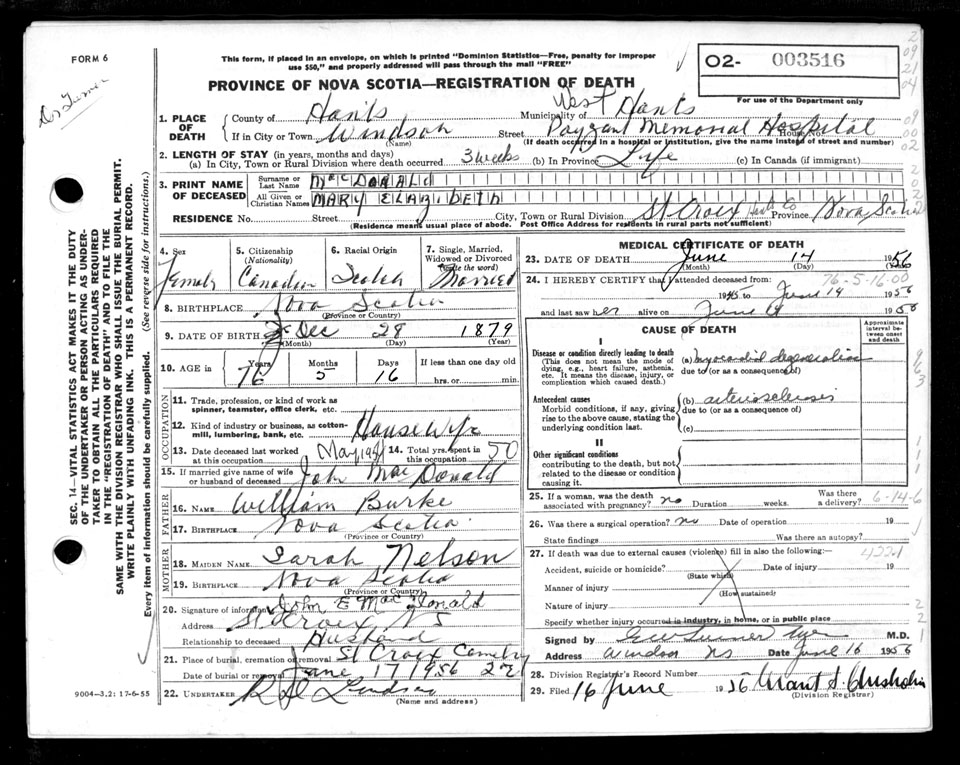 FORM 6
Dr Turner
This form, if placed in an envelope, on which is printed "Dominion Statistics—Free, penalty for improper
use $50," and properly addressed will pass through the mail "FREE"
PROVINCE OF NOVA SCOTIA—REGISTRATION OF DEATH
O2- 003516
For use of the Department only
1. PLACE OF DEATH
County of Hants Municipality of West Hants
If in City or Town Windsor Street Payzant Memorial Hospital House No.
(Name) (If death occurred in a hospital or institution, give the name instead of street and number)
2. LENGTH OF STAY (in years, months and days)
(a) In City, Town or Rural Division where death occurred 3 weeks (b) In Province Life (c) In Canada (if immigrant)
3. PRINT NAME OF DECEASED
Surname or Last Name McDONALD
All Given or Christian Names MARY ELAZIBETH
RESIDENCE No. Street City, Town or Rural Division St Croix Hants Co Province Nova Scotia
(Residence means usual place of abode. Post Office Address for residents in rural parts not sufficient)
4. Sex Female
5. Citizenship (Nationality) Canadian
6. Racial Origin Scotch
7. Single, Married, Widowed or Divorced (write the word) Married
8. BIRTHPLACE Nova Scotia
(Province or Country)
9. DATE OF BIRTH Dec 28 1879
(Month) (Day) (Year)
10. AGE in Years Months Days If less than one day old
76 5 16 hrs. or min.
OCCUPATION
11. Trade, profession or kind of work as
spinner, teamster, office clerk, etc.
12. Kind of industry or business, as cotton-
mill, lumbering, bank, etc. House Wife
13. Date deceased last worked at this occupation May 19
14. Total yrs. spent in this occupation 50
15. If married give name of wife
or husband of deceased John MacDonald
FATHER
16. Name William Burke
17. BIRTHPLACE Nova Scotia
(Province or Country)
MOTHER
18. MAIDEN NAME Sarah Nelson
19. BIRTHPLACE Nova Scotia
(Province or Country)
20. Signature of informant John E MacDonald
Address St Croix N S
Relationship to deceased Husband
21. Place of burial, cremation or removal St Croix Cemetry
Date of burial or removal June 17 1956
22. UNDERTAKER Lindsay
(Name and address)
MEDICAL CERTIFICATE OF DEATH
23. DATE OF DEATH June 14 1956
(Month) (Day) (Year)
76-5-16-00
24. I HEREBY CERTIFY that I attended deceased from:
19 to June 14 1956
and last saw her alive on June 1956
CAUSE OF DEATH
Approximate interval between onset and death
I
Disease or condition directly leading to death (a) myocardial degeneration
(This does not mean the mode of dying, e.g., heart failure, asthenia, etc. It means the disease, injury, or complication which caused death.)
due to (or as a consequence of)
Antecedent causes (b) arteriosclerosis
Morbid conditions, if any, giving rise to the above cause, stating the underlying condition last.
due to (or as a consequence of)
(c)
II
Other significant conditions
contributing to the death, but not related to the disease or condition causing it.
25. If a woman, was the death associated with pregnancy? no Duration weeks. Was there a delivery?
6-14-6
26. Was there a surgical operation? no Date of operation 19
State findings Was there an autopsy?
27. If death was due to external causes (violence) fill in also the following:— 4221
Accident, suicide or homicide? Date of injury 19
(State which)
Manner of injury
(How sustained)
Nature of injury
Specify whether injury occurred in industry, in home, or in public place
Signed by M.D.
Address Windsor NS Date June 16 1956
28. Division Registrar's Record Number
29. Filed 16 June 1956 Grant S. Chisholm
(Division Registrar)
SEC. 14—VITAL STATISTICS ACT MAKES IT THE DUTY
OF THE UNDERTAKER OR PERSON ACTING AS UNDER-
TAKER TO OBTAIN ALL THE PARTICULARS REQUIRED
IN THE "REGISTRATION OF DEATH" AND TO FILE THE
SAME WITH THE DIVISION REGISTRAR WHO SHALL ISSUE THE BURIAL PERMIT.
WRITE PLAINLY WITH UNFADING INK. THIS IS A PERMANENT RECORD.
Every item of information should be carefully supplied. (See reverse side for instructions.)
9004-3.2: 17-6-55